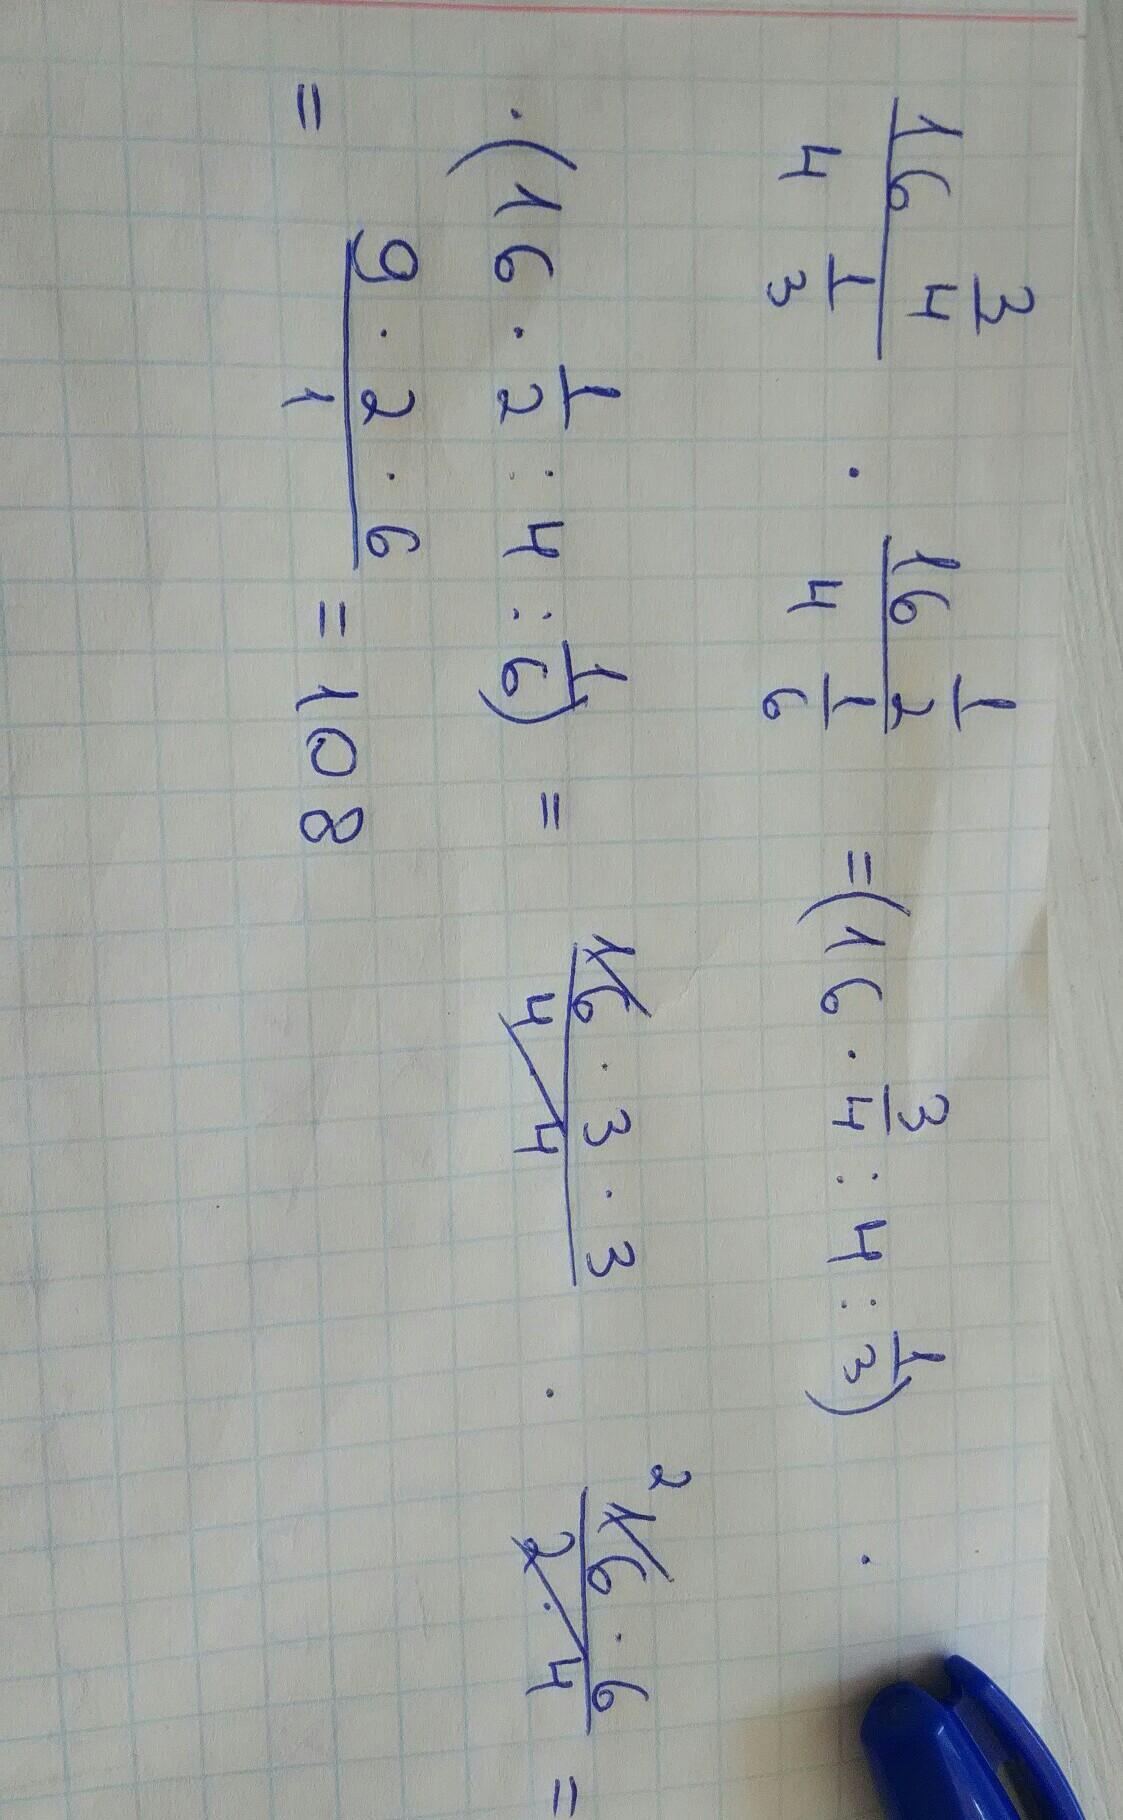 16 3/4 / 4 1/3 · 16 1/2 / 4 1/6 = (16 · 3/4 : 4 : 1/3) ·
· (16 · 1/2 : 4 : 1/6) = 16 · 3 · 3 / 4 · 4 · 2 16 · 6 / 2 · 4 =
= 9 · 2 · 6 / 1 = 108